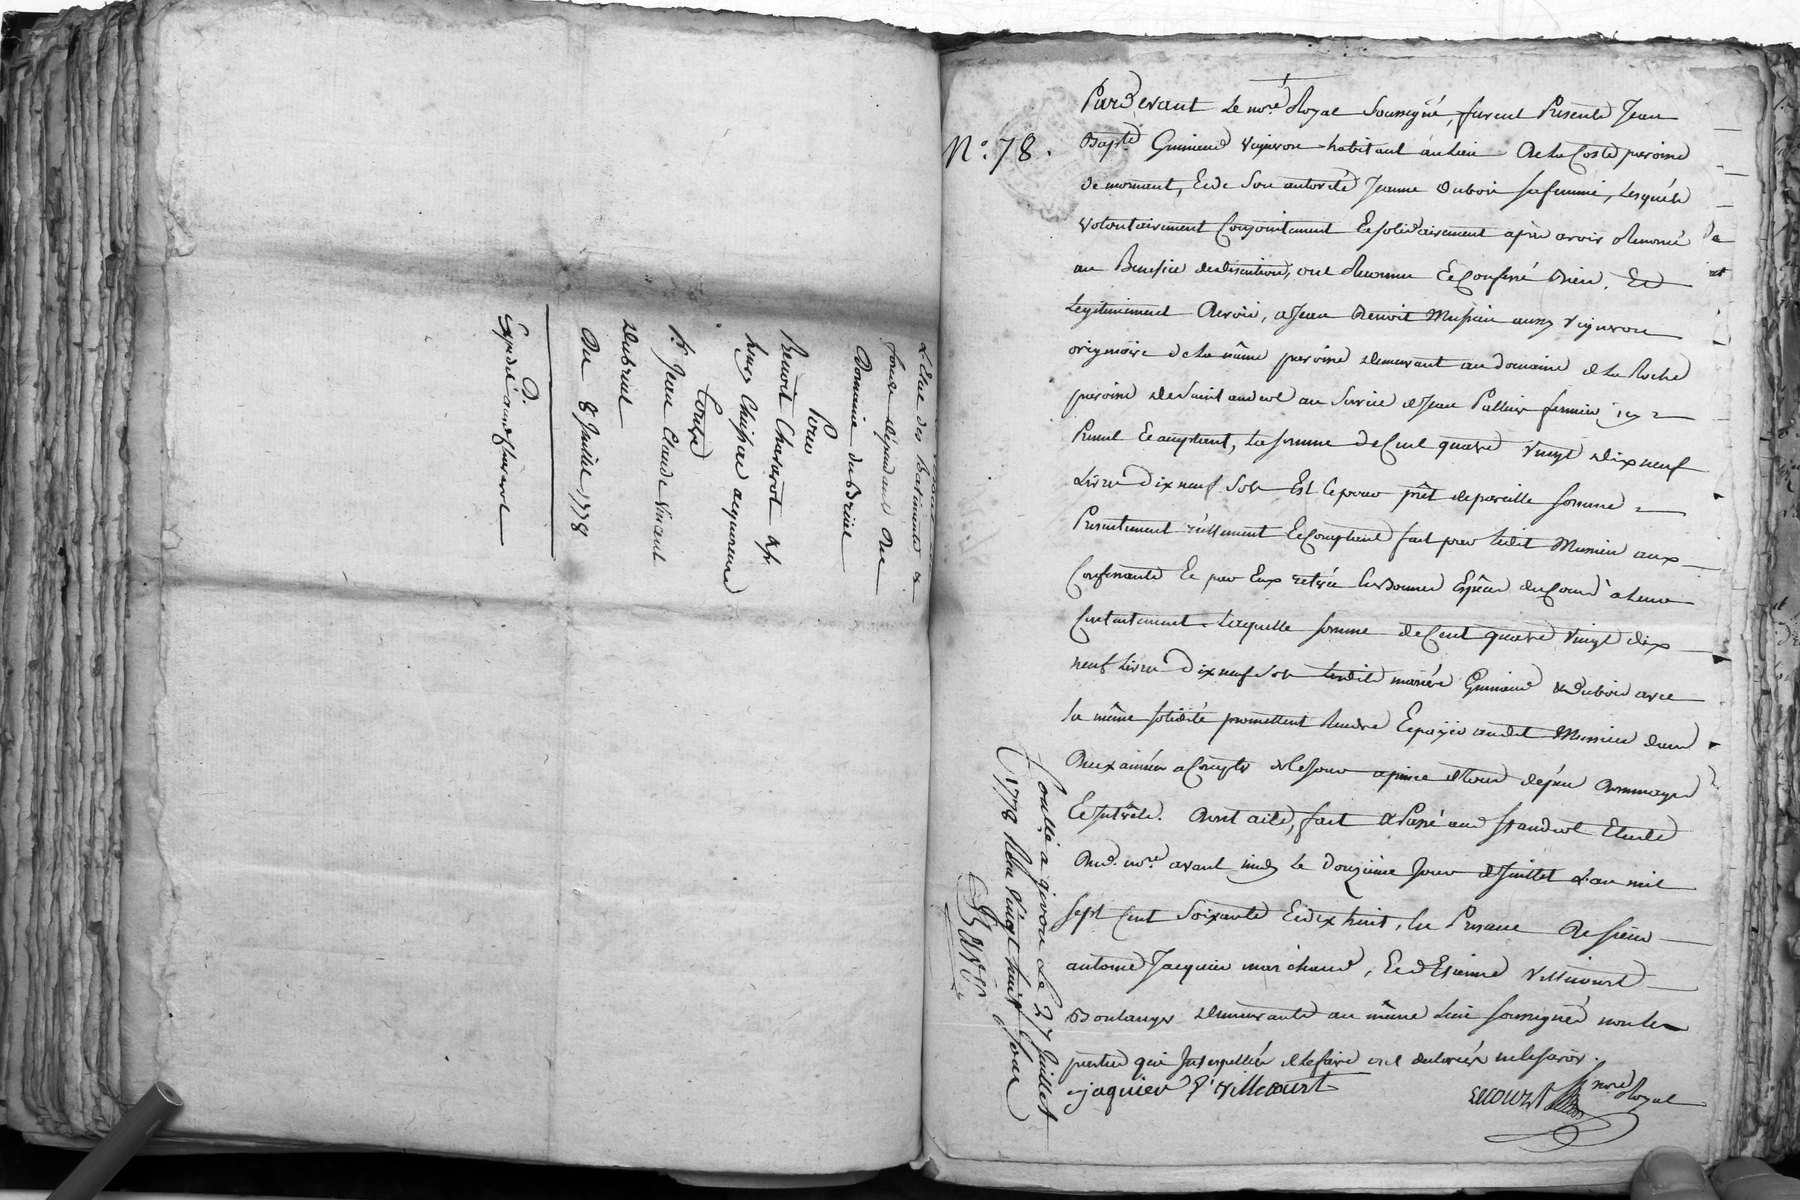 L'état des Batiments &
fonds dépendants du
Domaine du Briéel
Pour
Benoit Chavarot &
Luxy Chipiae acquereurs
Contre
Sr. Jean Claude Vincent
Dubriéel
Du 8 Juillet 1778
D.
Expedié aud Chavarot
N.° 78.
Pardevant Le nore. Royal Soussigné, furent Presents Jean
Bapte. Guinand vigneron habitant au Lieu De La Coste paroisse
de mornant, Et de Son autorité Jeanne Dubois sa femme, Lesquels
volontairement Conjointement Et solidairement après avoir Renoncé
au Benefice de discution, ont Reconnu Et Confessé Bien, Et
Legitimement Devoir, a Jean Benoit Mussieu aussy Vigneron
originaire de La même paroisse demeurant au domaine de La Roche
paroisse de Saint andeol au Service de Jean Pallier fermier icy
Present Et acceptant, La somme de Cent quatre Vingt dix neuf
Livres Dix neuf Sols Et Ce pour prêt de pareille somme
Presentement réellement Et Comptant fait par Ledit Mussieu aux
Confessants Et par Eux retirée En Bonnes Espèces du Cours à Leur
Contentement. Laquelle somme de Cent quatre Vingt dix
neuf Livres Dix neuf Sols Lesdits mariés Guinand & Dubois avec
la même solidité promettent Rendre Et payer audit Mussieu dans
Deux années a Compter de Ce Jour a peine de tous depens Dommages
Et Intérêts. Dont acte, fait & Passé aud St andeol Etude
Dud. nore. avant midy Le Douzieme Jour de Juillet L'an mil
sept Cent Soixante Et dix huit, En Presence De sieur
antoine Jacquier marchand, Et d'Etienne Villecourt
Boulanger demeurants au même Lieu soussignés non les
parties qui Interpellées de le faire ont declarées ne le savoir.
jaquier E villecourt
Lecourt nore. Royal
Controllé a givors Le 27 Juillet
1778 Reçu Vingt huit sous